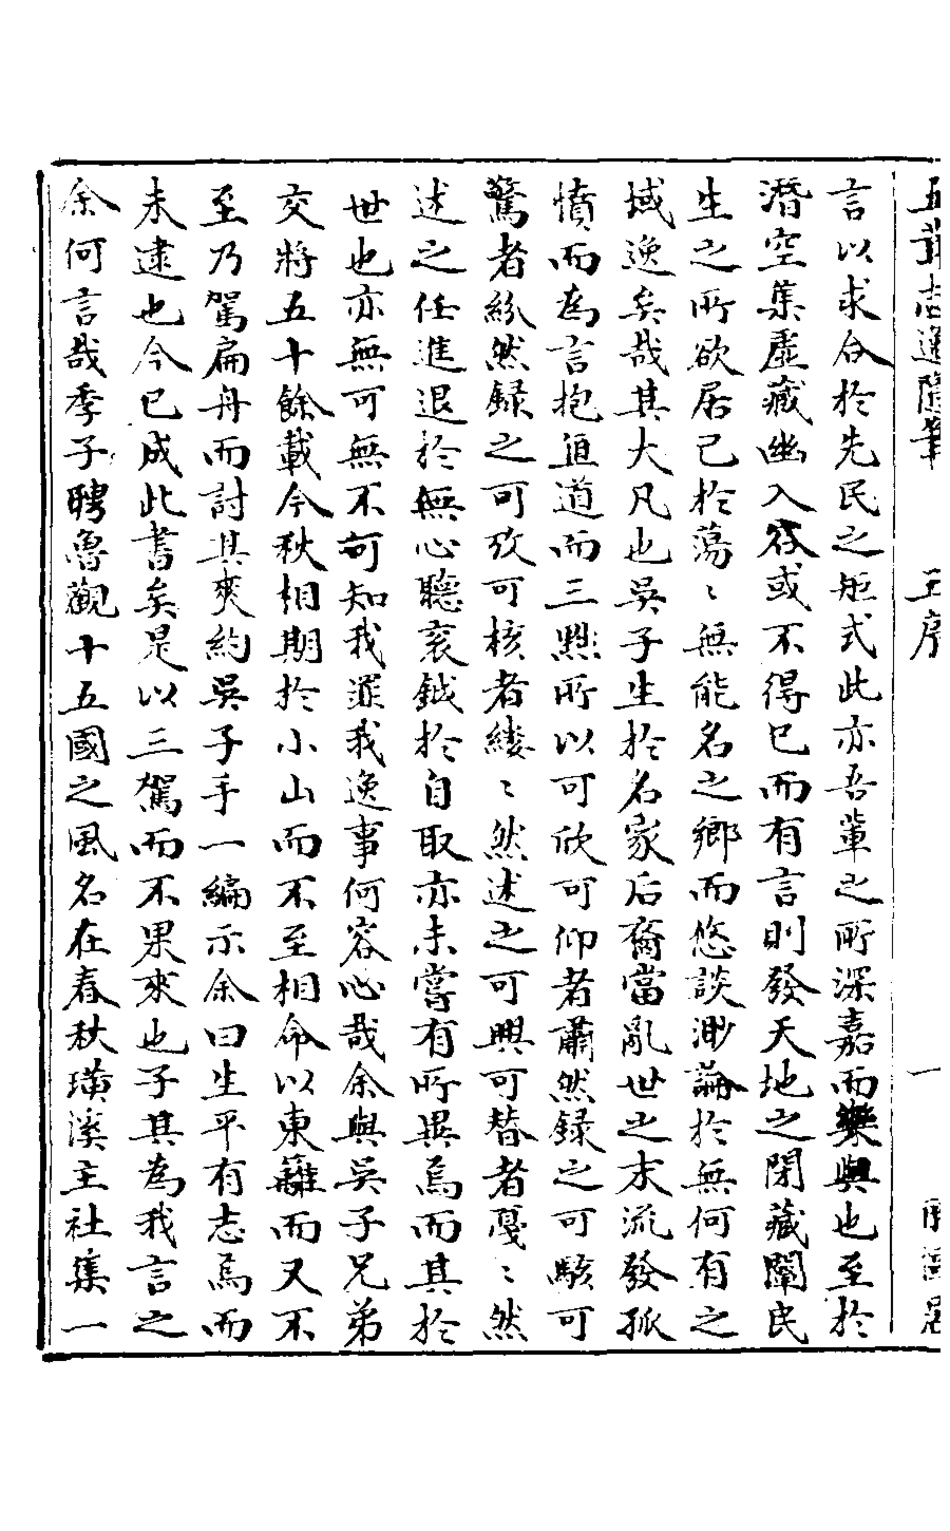 五茸志逸隨筆 王序 一
言以求合於先民之矩式此亦吾輩之所深嘉而樂與也至於
潛空集虛藏幽入谷或不得已而有言則發天地之閉藏闡民
生之所欲居已於蕩〻無能名之鄉而悠談渺論於無何有之
域逸矣哉其大凡也吳子生於名家后裔當亂世之末流發孤
憤而為言抱迫道而三點所以可欣可仰者肅然錄之可駭可
驚者紛然錄之可攷可核者縷〻然述之可興可替者戞〻然
述之任進退於無心聽袞鉞於自取亦未嘗有所異焉而其於
世也亦無可無不可知我罪我逸事何容心哉余與吳子兄弟
交將五十餘載今秋相期於小山而不至相命以東籬而又不
至乃駕扁舟而討其爽約吳子手一編示余曰生平有志焉而
未逮也今已成此書矣是以三駕而不果來也子其為我言之
余何言哉季子聘魯觀十五國之風名在春秋璜溪主社集一